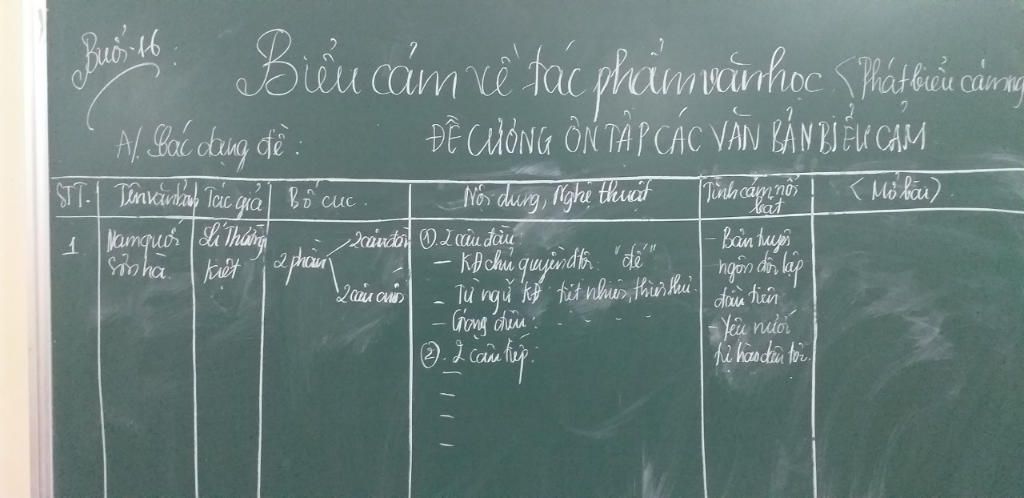 Buổi 16:
Biểu cảm về tác phẩm văn học (Phát biểu cảm ng
A/. Các dạng đề:
ĐỀ CƯƠNG ÔN TẬP CÁC VĂN BẢN BIỂU CẢM
STT. Tên văn bản Tác giả Bố cục. Nội dung, Nghệ thuật Tình cảm nổi bật (Mở bài)
1
Nam quốc
Sơn hà.
Lí Thường
Kiệt
2 phần
2 câu đầu
2 câu cuối
① 2 câu đầu:
- KĐ chủ quyền đ/n "đế"
- Từ ngữ KĐ: tiệt nhiên, thiên thư.
- Giọng điệu: - - -
②. 2 câu tiếp:
-
-
-
-
- Bản tuyên
ngôn độc lập
đầu tiên
- Yêu nước
tự hào dân tộc.